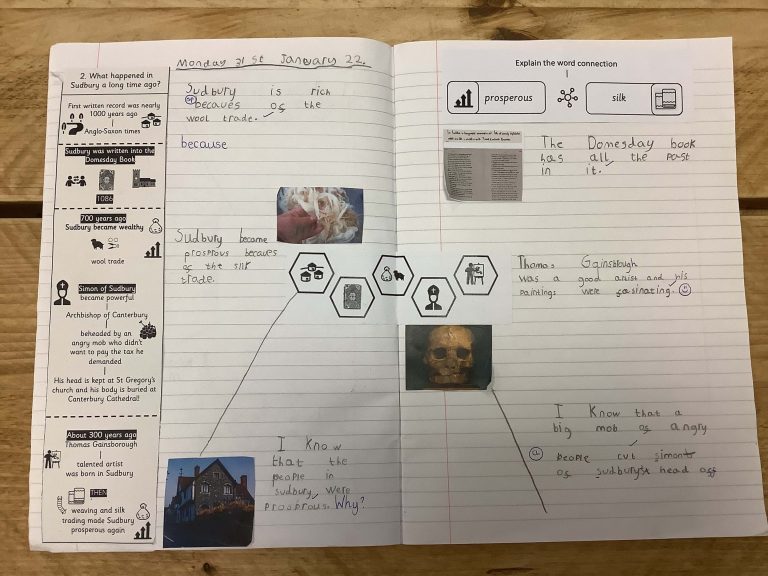 2. What happened in
Sudbury a long time ago?
First written record was nearly
1000 years ago
Anglo-Saxon times
Sudbury was written into the
Domesday Book
1086
700 years ago
Sudbury became wealthy
wool trade
Simon of Sudbury
became powerful
Archbishop of Canterbury
beheaded by an
angry mob who didn't
want to pay the tax he
demanded
His head is kept at St Gregory's
church and his body is buried at
Canterbury Cathedral!
About 300 years ago
Thomas Gainsborough
talented artist
was born in Sudbury
THEN
weaving and silk
trading made Sudbury
prosperous again
Monday 31st January 22.
Sudbury is rich
becaues of the
wool trade.
because
Sudbury became
prosprous becaues
of the silk
trade.
I know
that the
people in
sudbury were
prosprous. Why?
Explain the word connection
prosperous
silk
The Domesday book
has all the past
in it.
Thomas Gainsblough
was a good artist and his
paintings were fasinating.
I know that a
big mob of angry
people cut simons
of sudburys head off